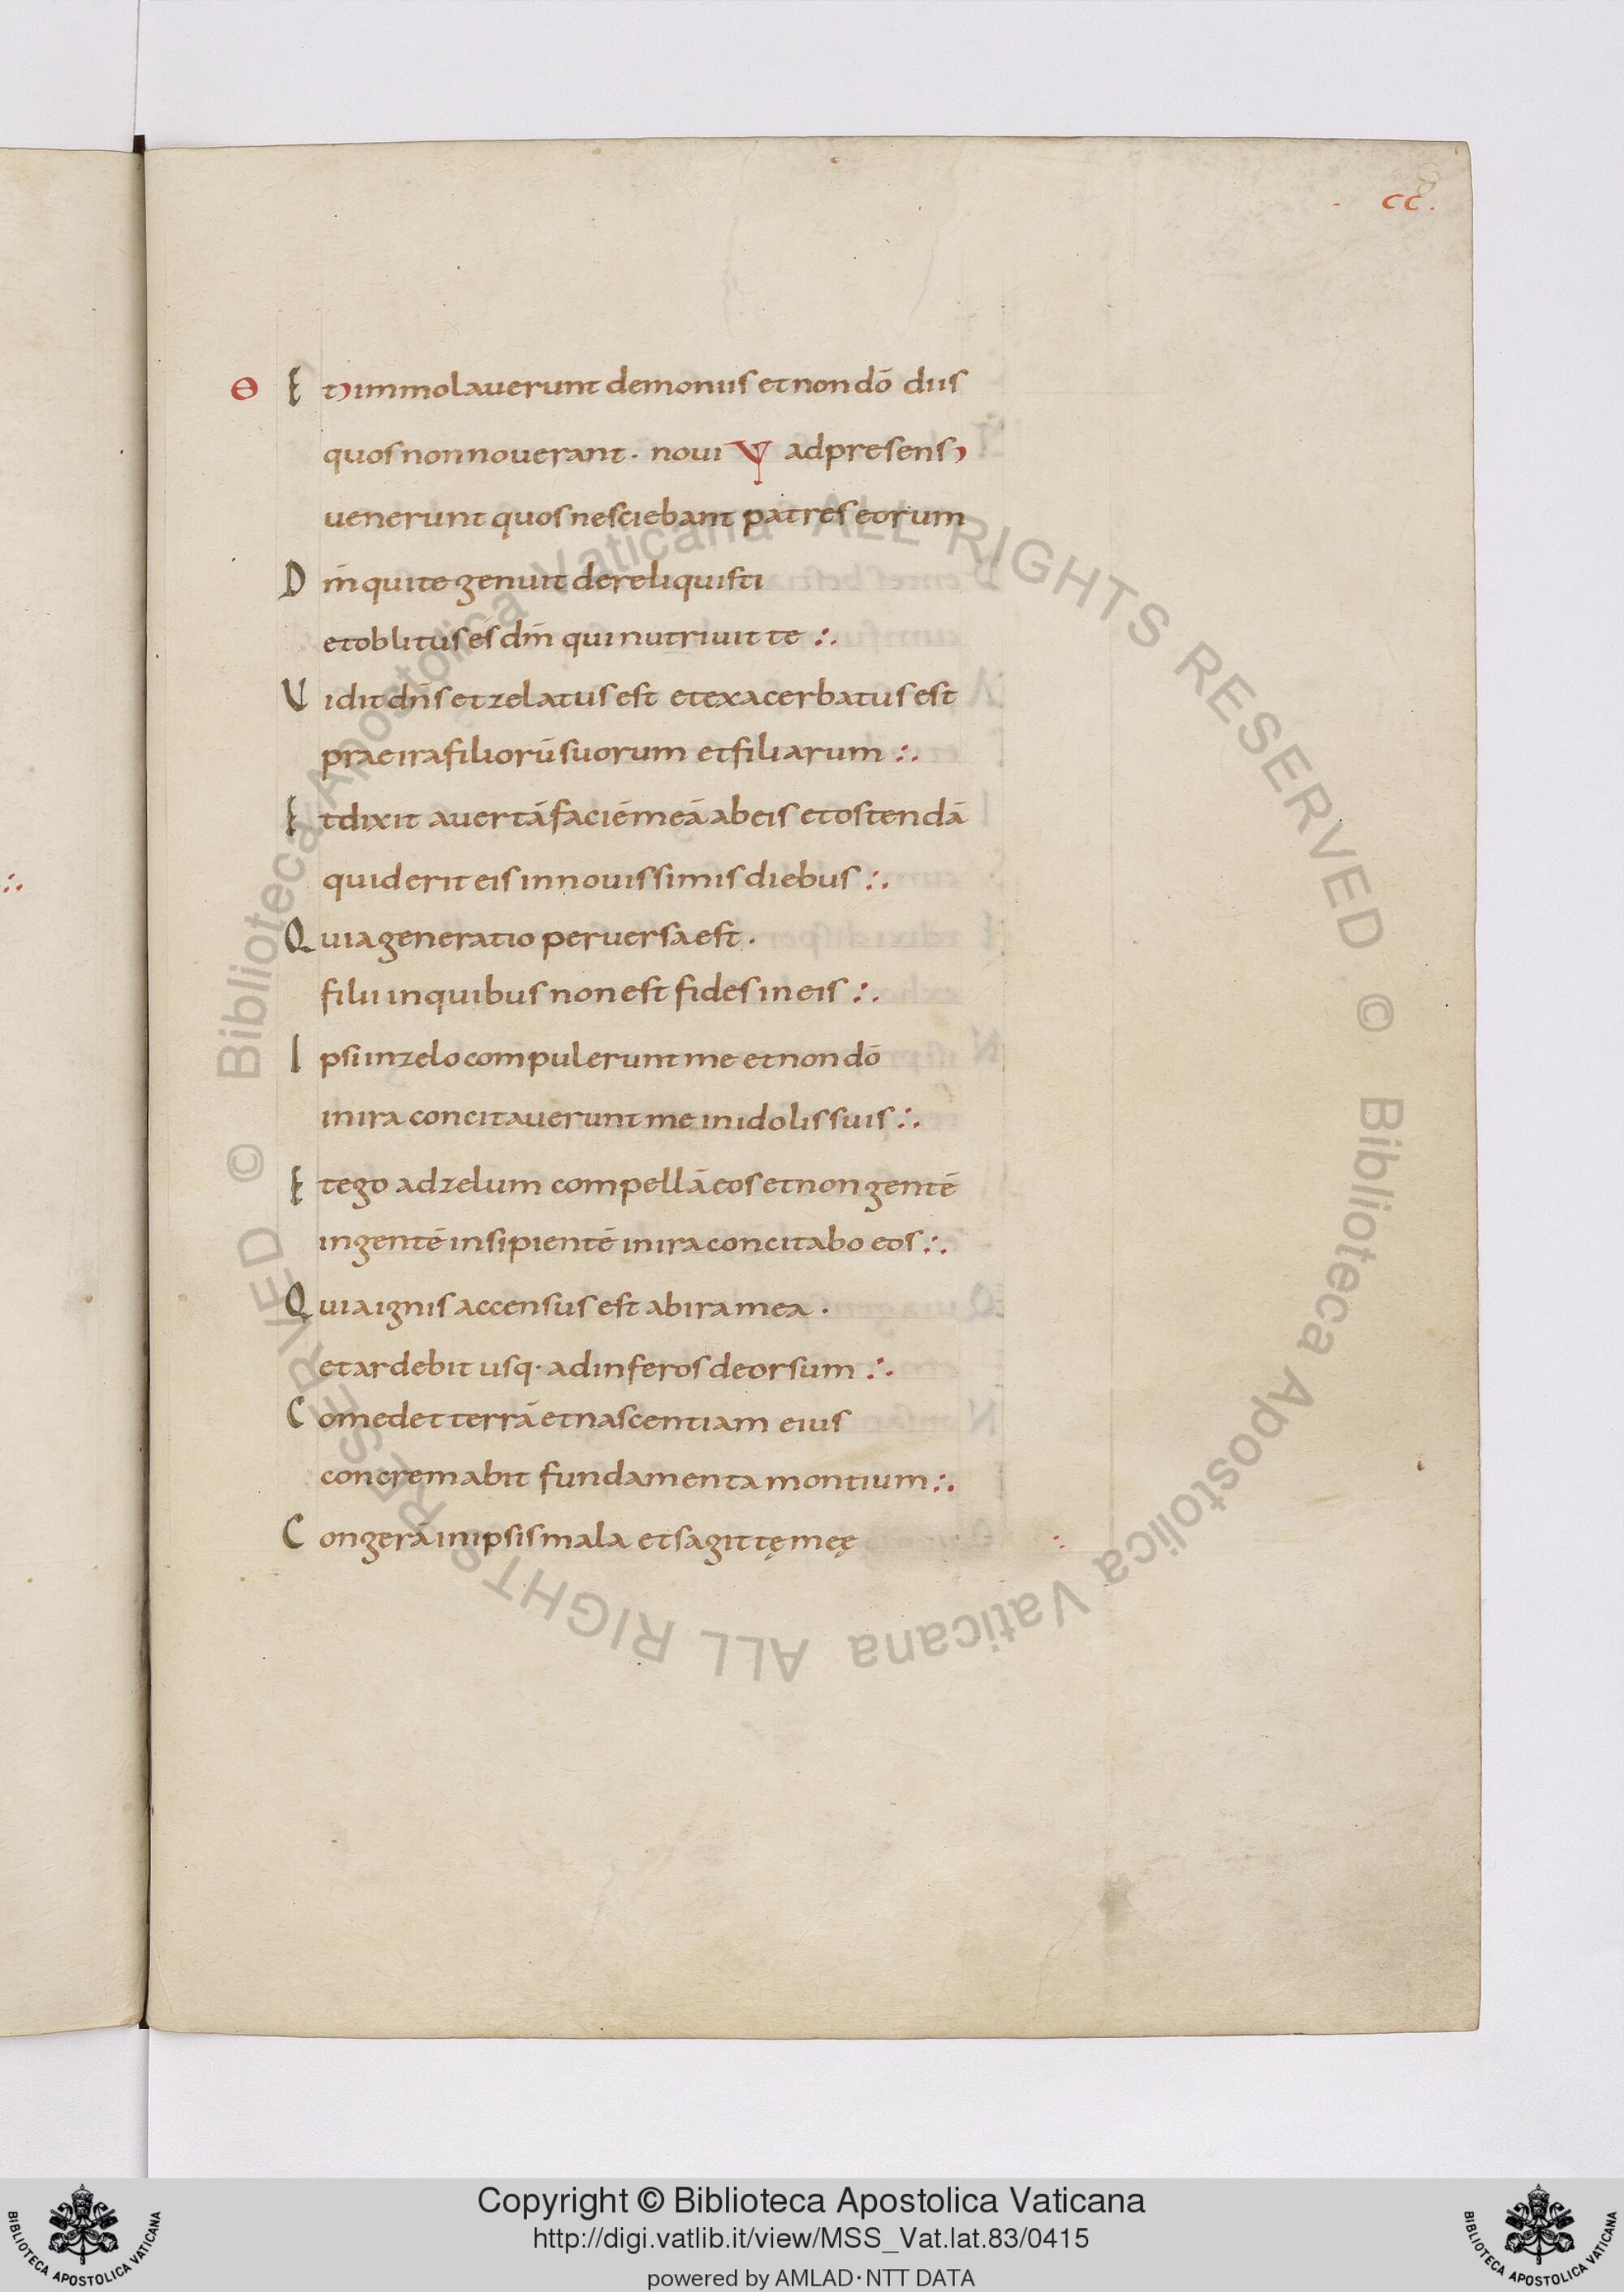 cc.
Θ E t immolauerunt demoniis et non dō diis
quos non nouerant · noui ad presens
uenerunt quos nesciebant patres eorum
D m̄ qui te genuit dereliquisti
et oblitus es dm̄ qui nutriuit te :.
V idit dn̄s et zelatus est et exacerbatus est
prae ira filiorū suorum et filiarum :.
E t dixit auertā faciē meā ab eis et ostendā
quid erit eis in nouissimis diebus :.
Q uia generatio peruersa est ·
filii in quibus non est fides in eis :.
I psi in zelo compulerunt me et non dō
in ira concitauerunt me in idolis suis :.
E t ego ad zelum compellā eos et non gentē
in gentē insipientē in ira concitabo eos :.
Q uia ignis accensus est ab ira mea ·
et ardebit usq· ad inferos deorsum :.
C omedet terrā et nascentiam eius
concremabit fundamenta montium :.
C ongerā in ipsis mala et sagittę meę
© Biblioteca Apostolica Vaticana ALL RIGHTS RESERVED © Biblioteca Apostolica Vaticana ALL RIGHTS RESERVED
Copyright © Biblioteca Apostolica Vaticana
http://digi.vatlib.it/view/MSS_Vat.lat.83/0415
powered by AMLAD·NTT DATA
BIBLIOTECA APOSTOLICA VATICANA
BIBLIOTECA APOSTOLICA VATICANA